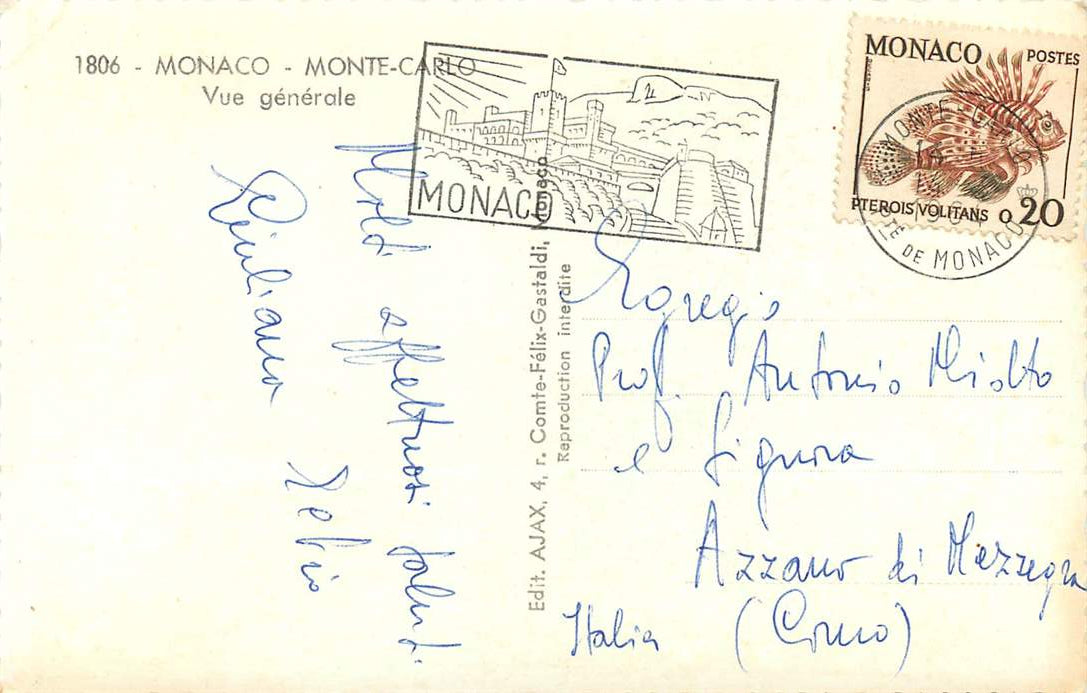 1806 - MONACO - MONTE-CARLO
Vue générale
MONACO
MONACO POSTES
PTEROIS VOLITANS 0,20
MONTE-CARLO
PTÉ DE MONACO
Molti affettuosi saluti
Giuliana
Edit. AJAX, 4, r. Comte-Félix-Gastaldi, Monaco
Reproduction interdite
Egregio
Prof. Antonio Miolto
e Signora
Azzano di Mezzegra
(Como)
Italia